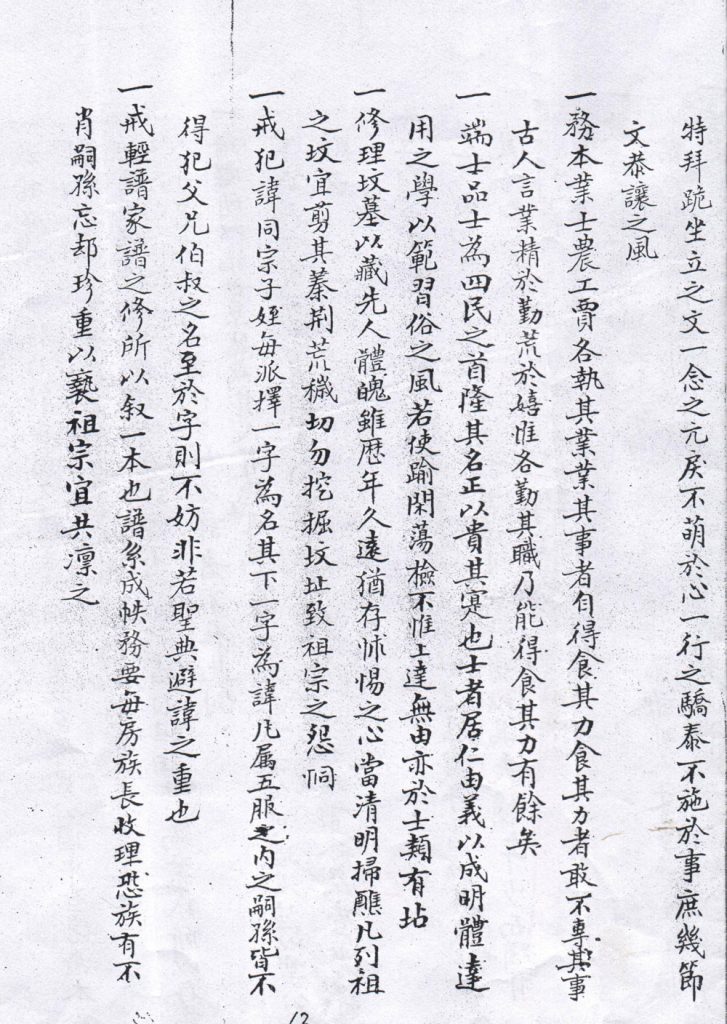 特拜跪坐立之文一念之亢戾不萌於心一行之驕泰不施於事庶幾節
文恭讓之風
一務本業士農工賈各執其業業其事者自得食其力食其力者敢不專其事
古人言業精於勤荒於嬉惟各勤其職乃能得食其力有餘矣
一端士品士為四民之首隆其名正以貴其寔也士者居仁由義以成明體達
用之學以範習俗之風若使踰閑蕩檢不惟上達無由亦於士類有玷
一修理坟墓以藏先人體魄雖歷年久遠猶存怵惕之心當清明掃醮凡列祖
之坟宜剪其蓁荆荒穢切勿挖掘坟址致祖宗之怨恫
一戒犯諱同宗子姪每派擇一字為名其下一字為諱凡属五服之内之嗣孫皆不
得犯父兄伯叔之名至於字則不妨非若聖典避諱之重也
一戒輕譜家譜之修所以叙一本也譜系成帙務要每房族長收理恐族有不
肖嗣孫忘却珍重以褻祖宗宜共凛之
12